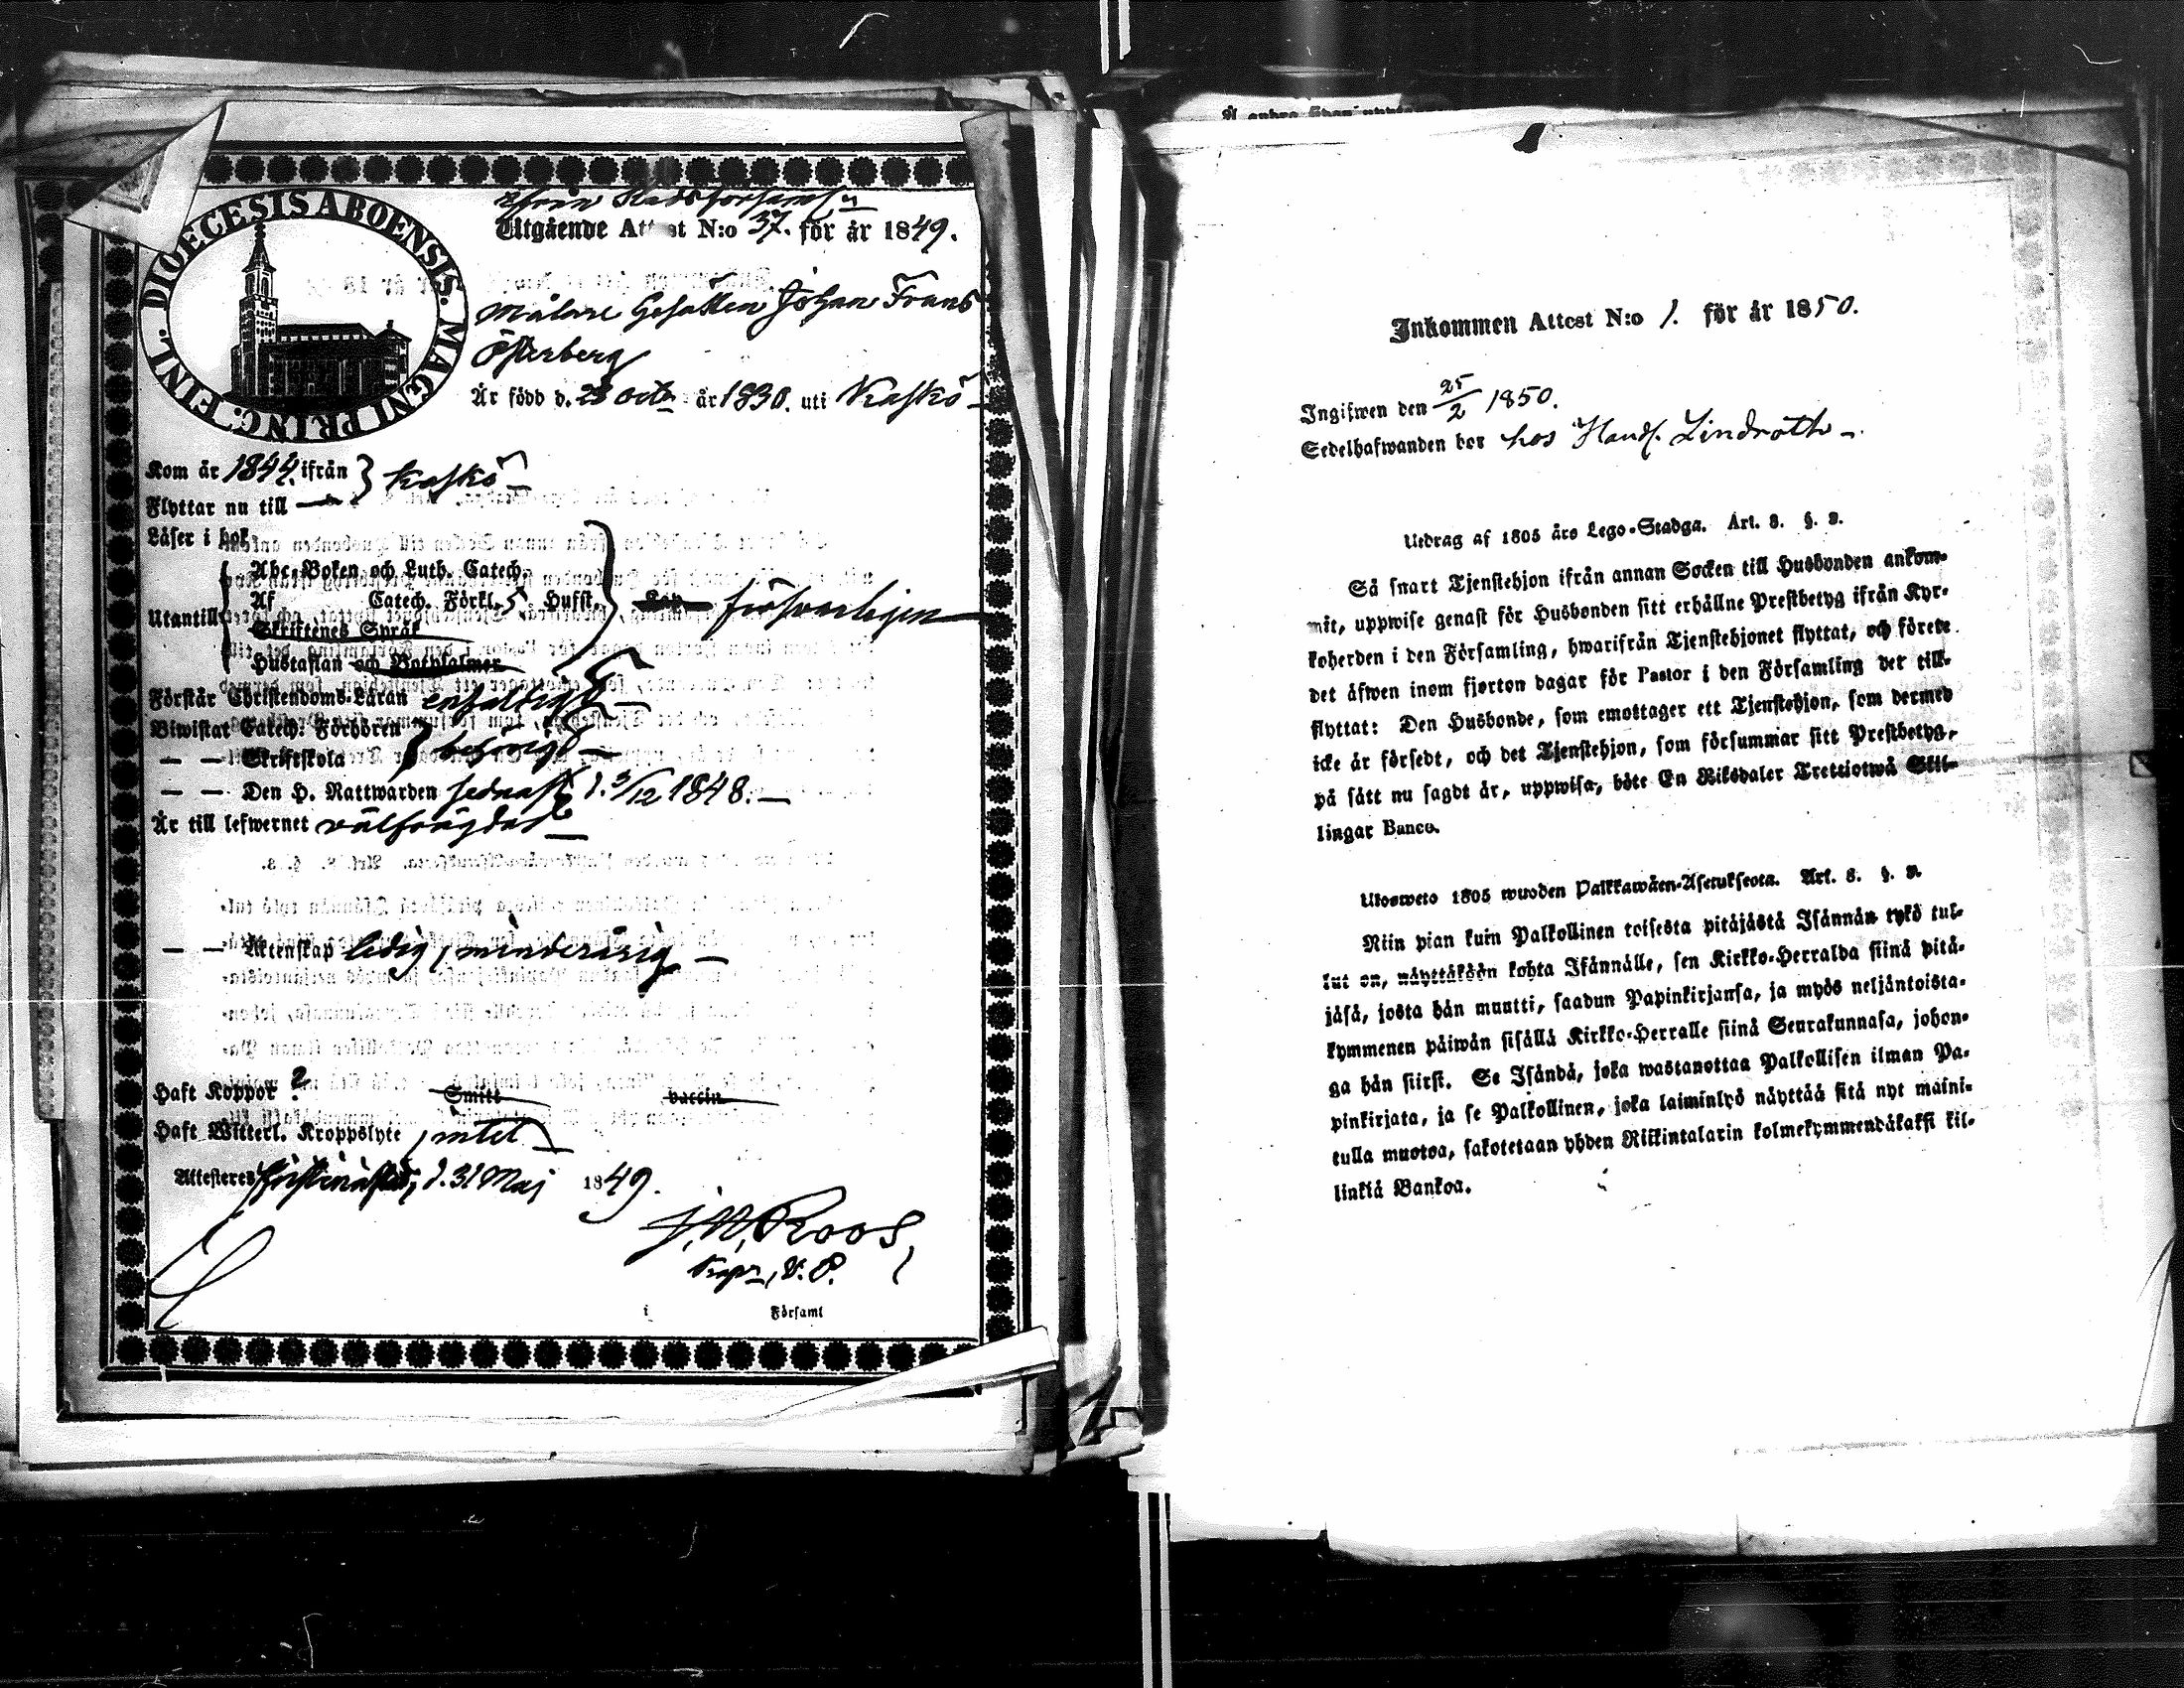 DIOECESIS ABOENSIS. MAGNI PRINC. FINL.
Utgående Attest N:o 37. för år 1849.
Målare Gesällen Johan Frans
Österberg
Är född d. 23 Octb år 1830. uti Kaskö
Kom år 1844. ifrån } Kaskö
Flyttar nu till
Läser i bok
Utantill
Abc-Boken och Luth. Catech.
Af Catech. Förkl. 5 Hufst. försvarligen
Skriftenes Språk
Hustaflan och Botpsalmer
Förstår Christendoms-Läran enfaldigt
Biwistat Catech. Förhören } behörigt
— — Skriftskola
— — Den H. Nattwarden sednast d. 3/12 1848.
Är till lefwernet välfrägdad
— — Äktenskap ledig, minderårig
Haft Koppor ? Smitt vaccin
Haft Witterl. Kroppslyte, intet
Attesteras Christinæstad, d. 31 Maj 1849.
J. W. Roos,
V. P.
i Församl
Inkommen Attest N:o 1. för år 1850.
Ingifwen den 25/2 1850.
Sedelhafwanden bor hos Handl. Lindroth
Utdrag af 1805 års Lego-Stadga. Art. 8. §. 2.
Så snart Tjenstehjon ifrån annan Socken till Husbonden ankom-
mit, uppwise genast för Husbonden sitt erhållne Prestbetyg ifrån Kyr-
koherden i den Församling, hwarifrån Tjenstehjonet flyttat, och förete
det äfwen inom fjorton dagar för Pastor i den Församling det till-
flyttat: Den Husbonde, som emottager ett Tjenstehjon, som dermed
icke är försedt, och det Tjenstehjon, som försummar sitt Prestbetyg,
på sätt nu sagdt är, uppwisa, böte En Riksdaler Trettiotwå Skil-
lingar Banco.
Utosweto 1805 wuoden Palkkawäen-Asetuksesta. Art. 8. §. 2.
Niin pian kuin Palkollinen toisesta pitäjästä Isännän tykö tul-
lut on, näyttäköön kohta Isännälle, sen Kirkko-Herralda siinä pitä-
jäsä, josta hän muutti, saadun Papinkirjansa, ja myös neljäntoista-
kymmenen päiwän sisällä Kirkko-Herralle siinä Seurakunnasa, johon-
ga hän siirsi. Se Isändä, joka wastanottaa Palkollisen ilman Pa-
pinkirjata, ja se Palkollinen, joka laiminlyö näyttää sitä nyt maini-
tulla muotoa, sakotetaan yhden Riikintalarin kolmekymmendäkaksi kil-
linkiä Bankoa.